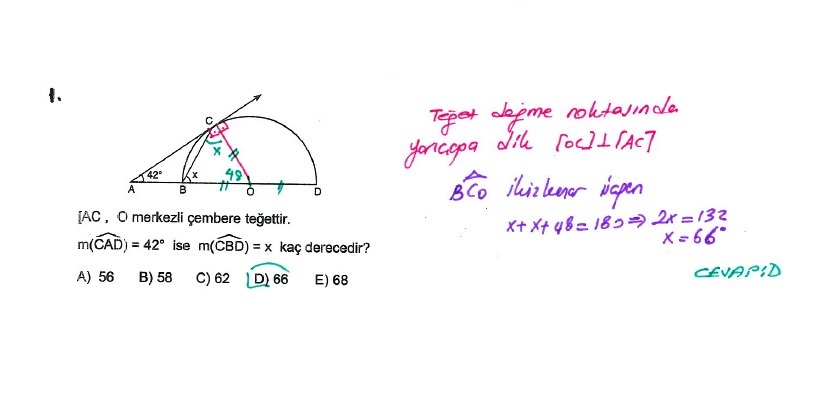 1.
C
x
42°
x
48
A
B
O
D
[AC , O merkezli çembere teğettir.
m(CAD) = 42° ise m(CBD) = x kaç derecedir?
A) 56 B) 58 C) 62 D) 66 E) 68
Teğet değme noktasında
yarıçapa dik [OC]⊥[AC]
BCO ikizkenar üçgen
x+x+48=180⇒2x=132
x=66°
CEVAP:D